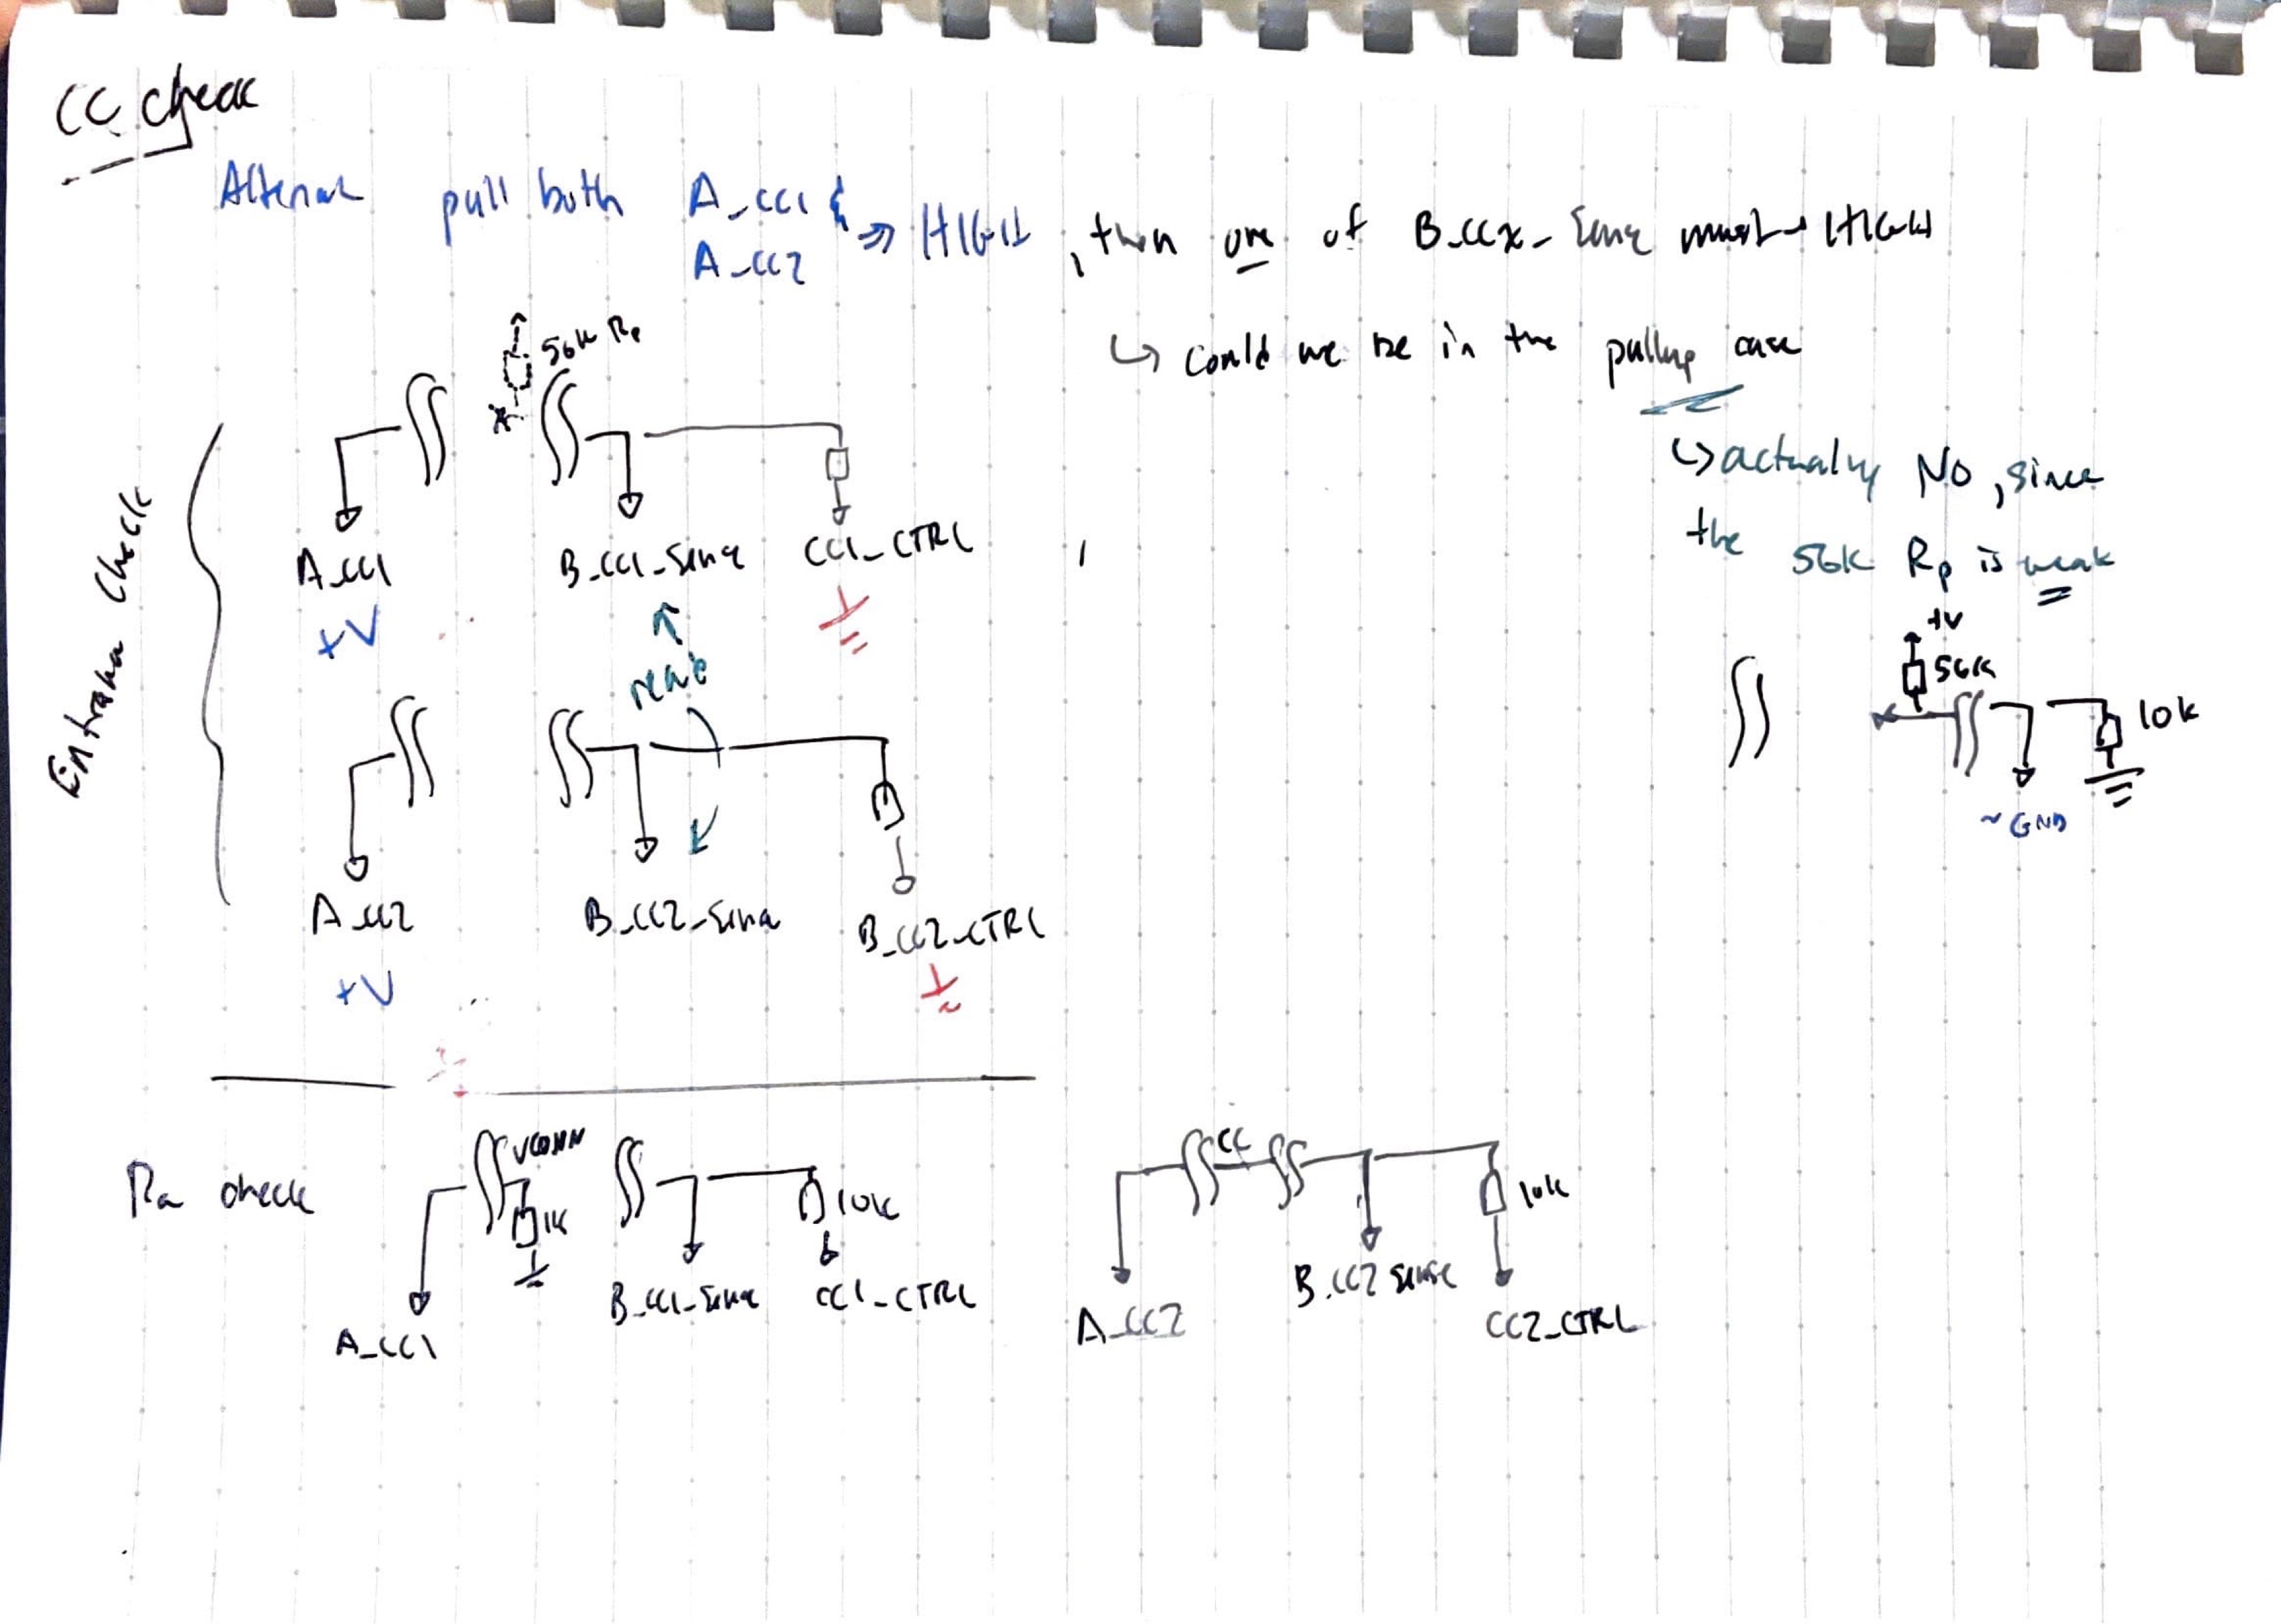 CC check
Alternate pull both A_CC1 & A_CC2 => HIGH, then one of B_CCx_Sense must → HIGH
↳ could we be in the pullup case
↳ actually NO, since
the 56K Rp is weak
56K Rp
Entrance Check
A_CC1
B_CC1_Sense
CC1_CTRL
+V
read
A_CC2
B_CC2_Sense
B_CC2_CTRL
+V
+V
56K
10K
~GND
Ra check
VCONN
1K
10K
A_CC1
B_CC1_Sense
CC1_CTRL
CC
10K
A_CC2
B_CC2 sense
CC2_CTRL